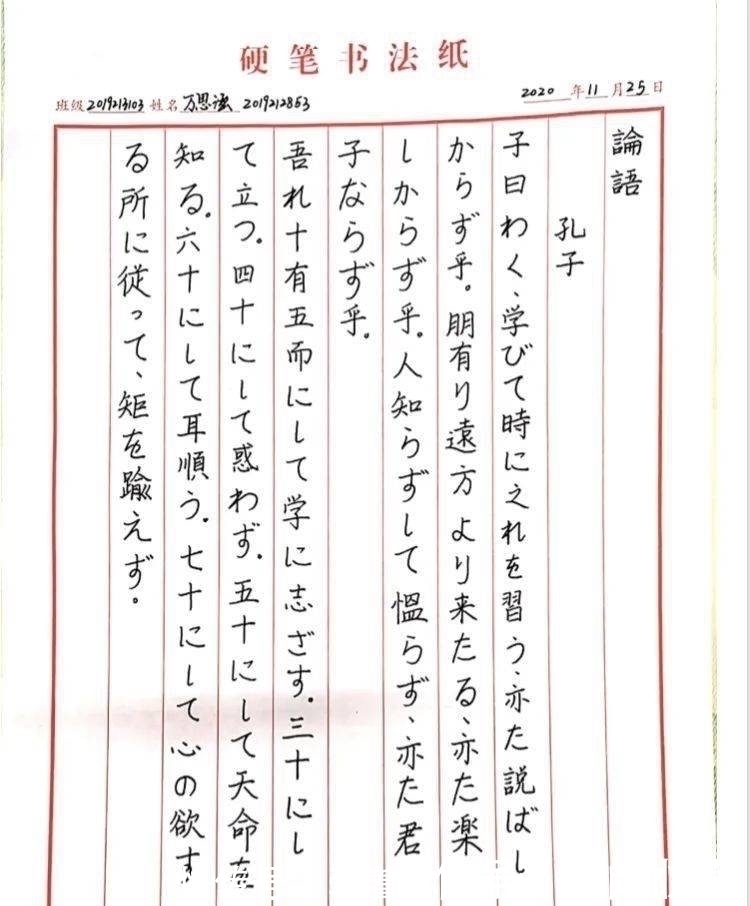 硬笔书法纸
班级 2019213103 姓名 万思谶 2019212853 2020 年 11 月 25 日
論語
孔子
子曰わく、学びて時に之れを習う、亦た説ばし
からず乎。朋有り遠方より来たる、亦た楽
しからず乎。人知らずして慍らず、亦た君
子ならず乎。
吾れ十有五而にして学に志ざす。三十にし
て立つ。四十にして惑わず。五十にして天命を
知る。六十にして耳順う。七十にして心の欲す
る所に従って、矩を踰えず。